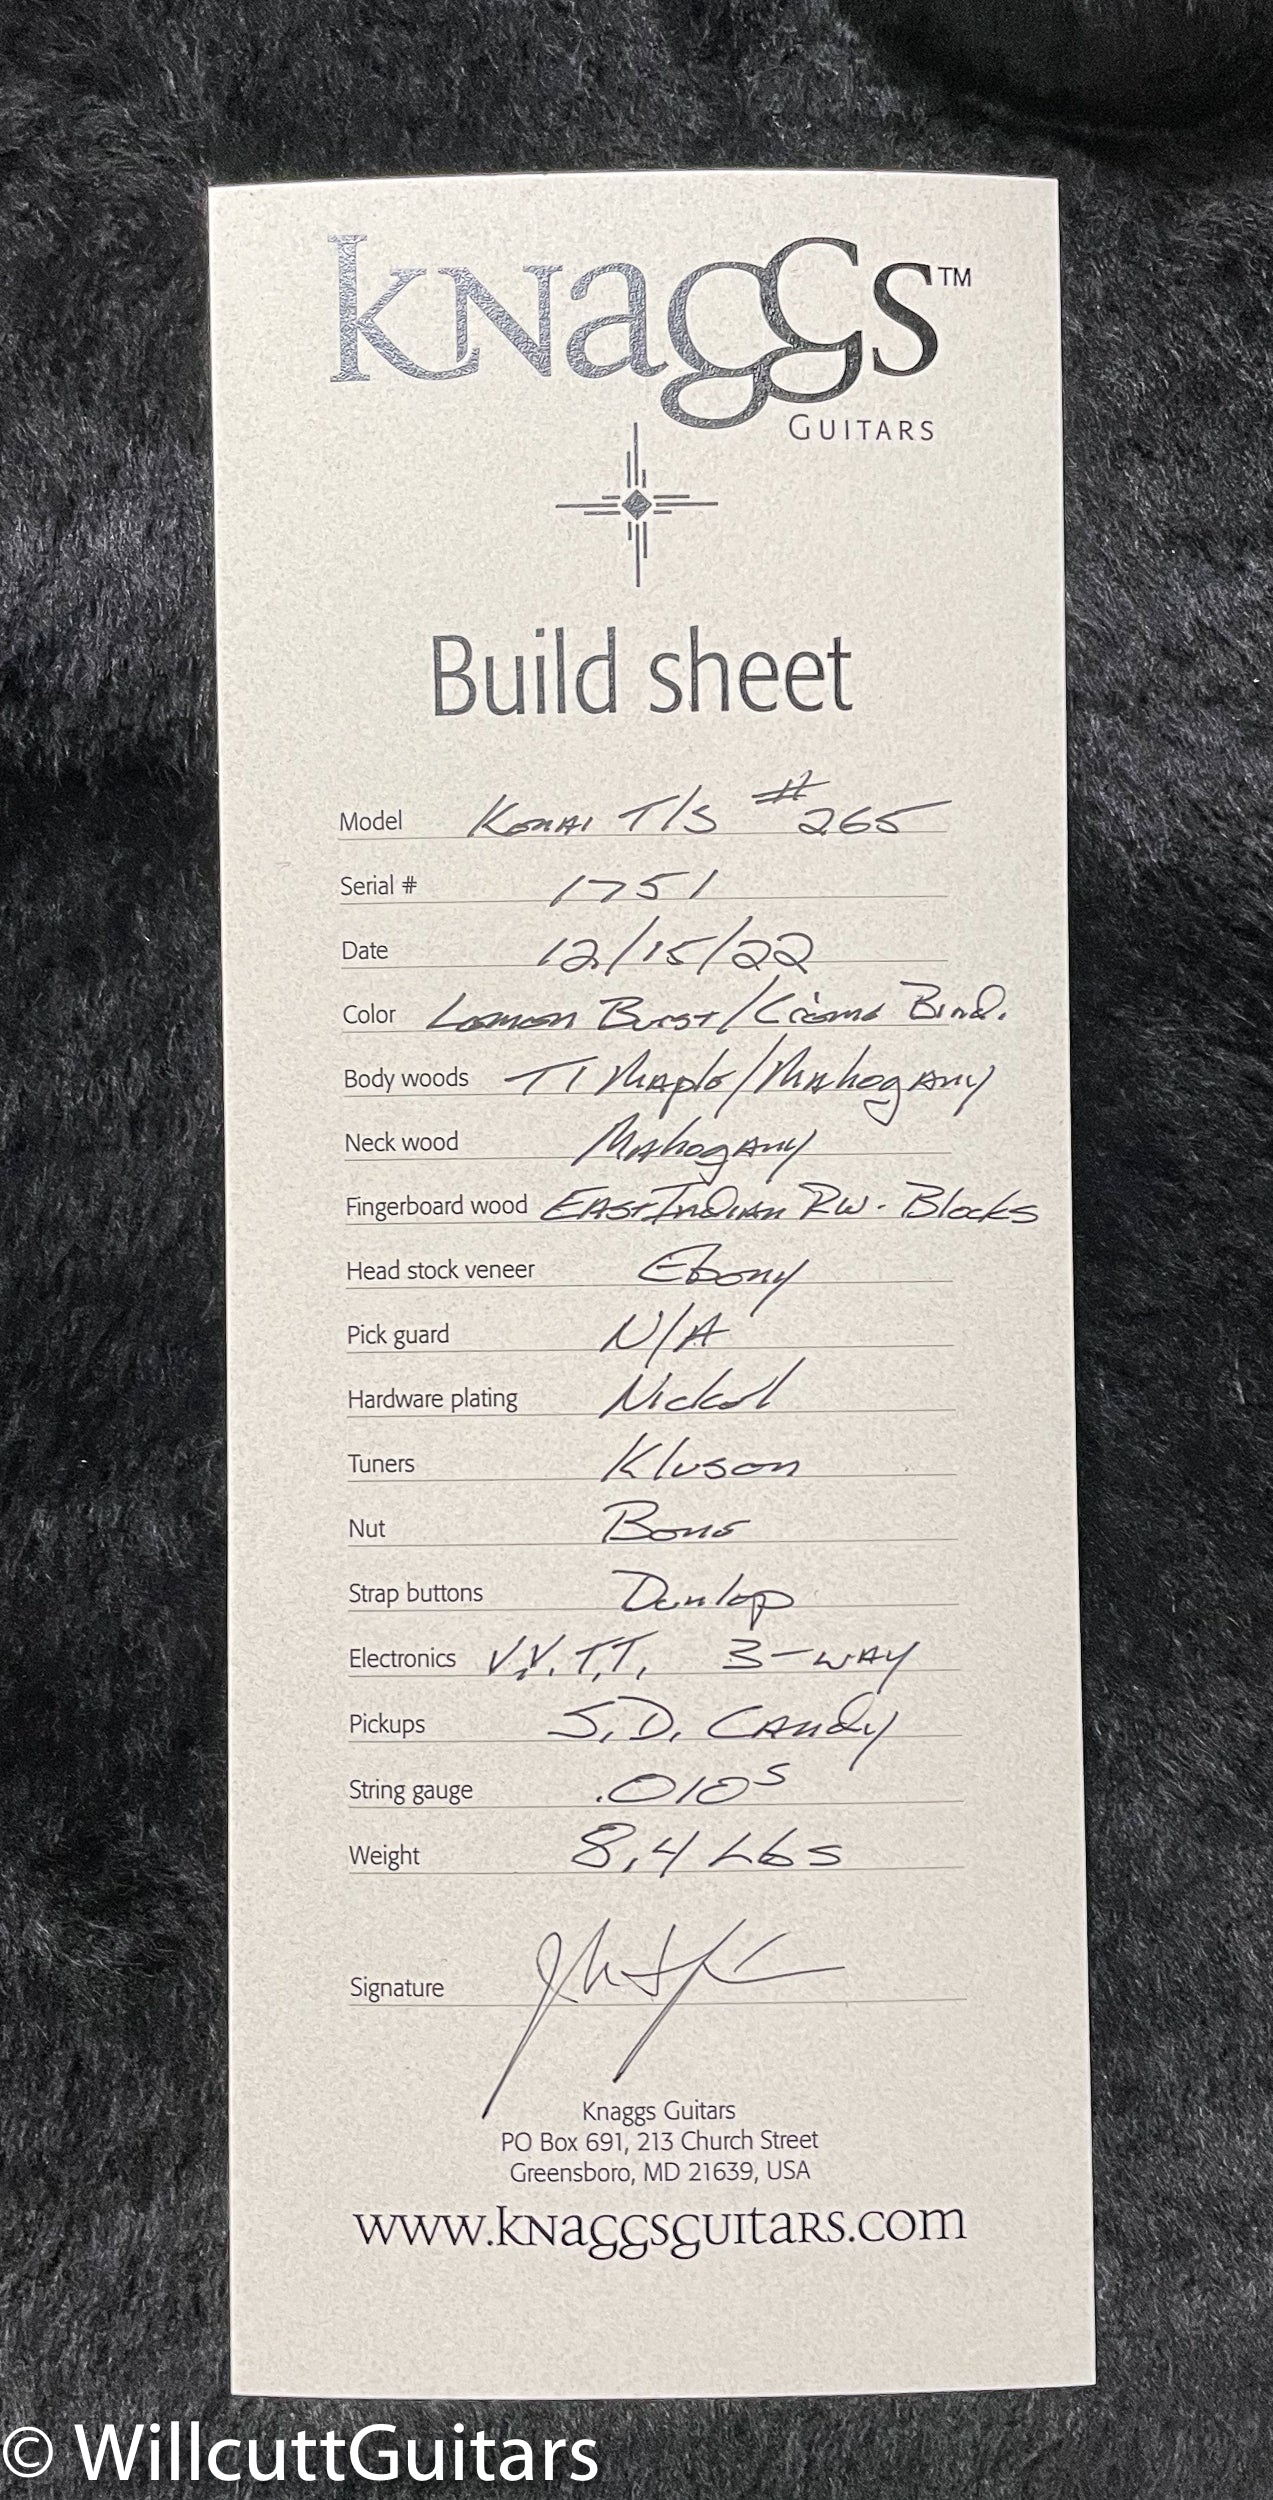 Knaggs™
Guitars
Build sheet
Model Kenai T/S #265
Serial # 1751
Date 12/15/22
Color Lemon Burst/Creme Bind.
Body woods T1 Maple/Mahogany
Neck wood Mahogany
Fingerboard wood East Indian RW. Blocks
Head stock veneer Ebony
Pick guard N/A
Hardware plating Nickel
Tuners Kluson
Nut Bone
Strap buttons Dunlop
Electronics V.V.T.T. 3-way
Pickups S.D. Candy
String gauge .010s
Weight 8.4 Lbs
Signature
Knaggs Guitars
PO Box 691, 213 Church Street
Greensboro, MD 21639, USA
www.knaggsguitars.com
© WillcuttGuitars